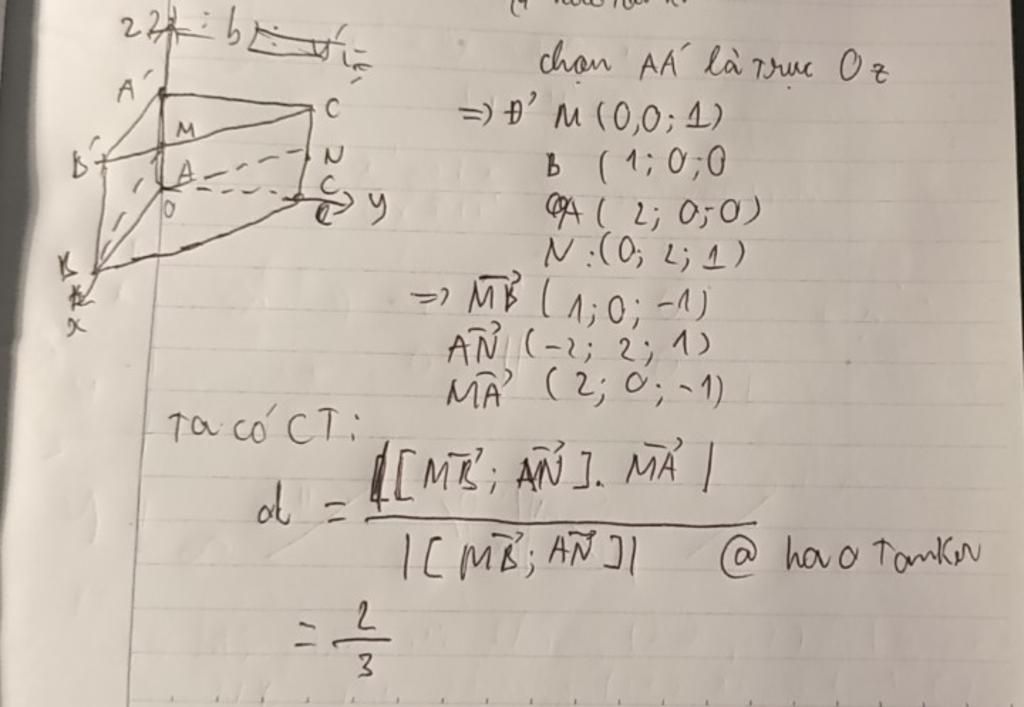 A'
C
M
B'
N
A
C
O
y
x
chọn AA' là trục Oz
=> Đ' M (0,0; 1)
B ( 1; 0; 0
A ( 2; 0; 0)
N: (0; 2; 1)
=> MB ( 1; 0; -1)
AN (-2; 2; 1)
MA ( 2; 0; -1)
Ta có CT:
d = |[MB; AN]. MA| / |[MB; AN]|
@ haotamkn
= 2/3